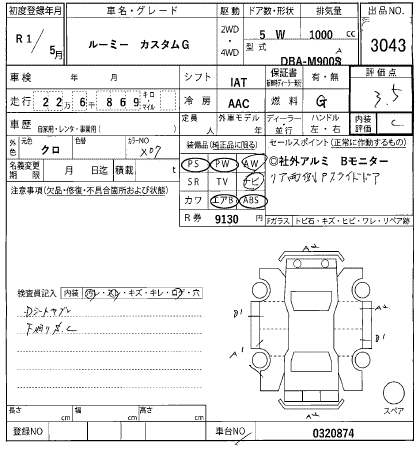 初度登録年月 車名・グレード 駆動 ドア数・形状 排気量 出品NO.
R1/5月 ルーミー カスタムG 2WD・4WD 5 W 1000 cc 3043
型式 DBA-M900S
車検 年 月 シフト IAT 保証書 有・無 評価点
走行 22万6千869 キロ・マイル 冷房 AAC 燃料 G 3.5
車歴 自家用・レンタ・事業用( ) 定員 人 外車モデル 年 ディーラー・並行 ハンドル 左・右 内装評価 C
外色 元色 クロ 色替 カラーNO X07 装備品(純正品に限る) セールスポイント(正常に動作するもの)
PS PW AW ◎社外アルミ Bモニター
名義変更期限 月 日迄 積載 t SR TV ナビ リア両側Pスライドドア
注意事項(欠品・修復・不具合箇所および状態) カワ エアB ABS
R券 9130 円 Fガラス トビ石・キズ・ヒビ・ワレ・リペア跡
A2
検査員記入 内装 汚レ・スレ・キズ・キレ・コゲ・穴
B1 B1
A1 A1
A2
スペア
長さ cm 幅 cm 高さ cm
登録NO 車台NO 0320874